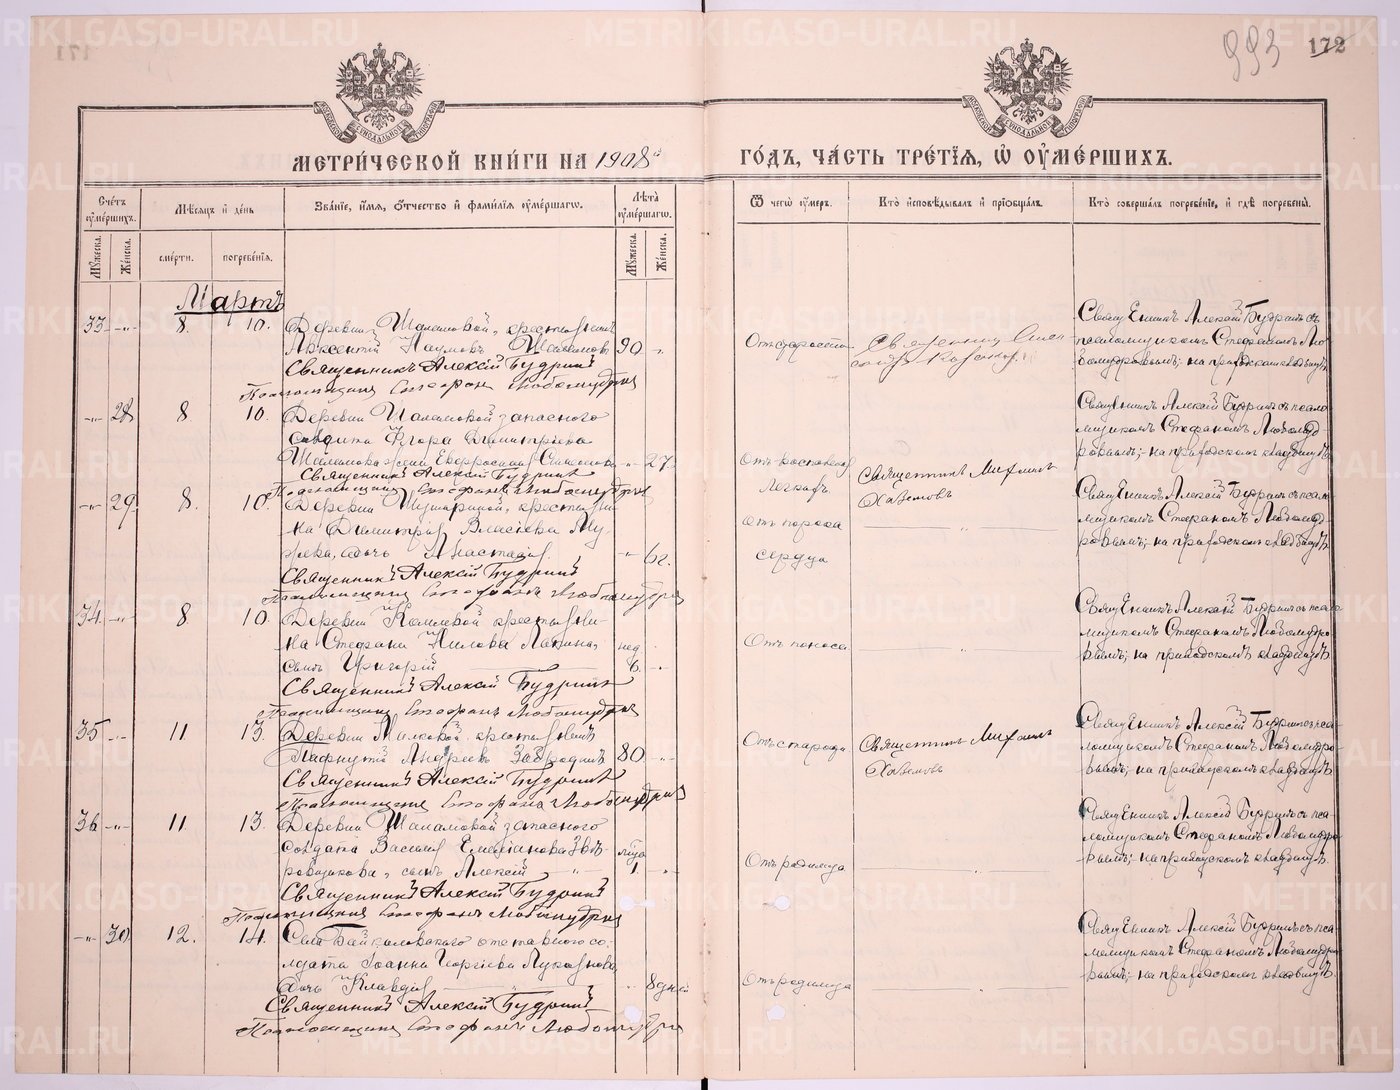 993
172
МЕТРИЧЕСКОЙ КНИГИ НА 1908й
ГОДЪ, ЧАСТЬ ТРЕТІЯ, Ѡ ОУМЕРШИХЪ.
Счетъ оумершихъ.
Мѣсяцъ и день
Званіе, имя, отчество и фамилія оумершагѡ.
Лѣта оумершагѡ.
Ѿ чегѡ оумеръ.
Кто исповѣдывалъ и пріобщалъ.
Кто совершалъ погребеніе, и гдѣ погребены.
Мужеска.
Женска.
смерти.
погребенія.
Мужеска.
Женска.
Мартъ
33 -"- 8. 10. Деревни Шаламовой, крестьянинъ
Авксентій Наумовъ Шаламовъ 90 -
Отъ старости
Священникъ Алексій Будринъ
Псаломщикъ Стефанъ Любомудровъ
Священникъ Алексій Будринъ съ
псаломщикомъ Стефаномъ Лю-
бомудровымъ; на приходскомъ кладбищѣ
-"- 28 8 10. Деревни Шаламовой запасного
солдата Егора Димитріева
Шаламова жена Евфросинія Симеонова -"- 27
Отъ воспаленія
легкихъ
Священникъ Михаилъ
Священникъ Алексій Будринъ
Псаломщикъ Стефанъ Любомудровъ
Священникъ Алексій Будринъ съ псало-
мщикомъ Стефаномъ Любомуд-
ровымъ; на приходскомъ кладбищѣ
-"- 29 8. 10. Деревни
крестьяни-
на Димитрія Власіева Му-
дочь Анастасія -"- 6 г.
Отъ порока
сердца
Священникъ Алексій Будринъ
Псаломщикъ Стефанъ Любомудровъ
Священникъ Алексій Будринъ съ псало-
мщикомъ Стефаномъ Любомуд-
ровымъ; на приходскомъ кладбищѣ
34 -"- 8 10. Деревни
крестьяни-
на Стефана Нилова
сынъ Григорій нед. 6. -"-
Отъ поноса
Священникъ Алексій Будринъ
Псаломщикъ Стефанъ Любомудровъ
Священникъ Алексій Будринъ съ псало-
мщикомъ Стефаномъ Любомудро-
вымъ; на приходскомъ кладбищѣ
35 -"- 11 13. Деревни
крестьянинъ
Пафнутій Андреевъ Забродинъ 80. -"-
Священникъ Михаилъ
Священникъ Алексій Будринъ
Псаломщикъ Стефанъ Любомудровъ
Священникъ Алексій Будринъ съ пса-
ломщикомъ Стефаномъ Любомудро-
вымъ; на приходскомъ кладбищѣ
36 -"- 11. 13. Деревни Шаламовой запасного
солдата Василія Емеліанова
сынъ Алексій 1 -"-
Отъ родимца
Священникъ Алексій Будринъ
Псаломщикъ Стефанъ Любомудровъ
Священникъ Алексій Будринъ съ пса-
ломщикомъ Стефаномъ Любомудро-
вымъ; на приходскомъ кладбищѣ
-"- 30 12. 14. Села Байкаловскаго отставного со-
лдата Іоанна Георгіева Лукоянова
дочь Клавдія -"- 8 дней
Отъ родимца
Священникъ Алексій Будринъ
Псаломщикъ Стефанъ Любомудровъ
Священникъ Алексій Будринъ съ пса-
ломщикомъ Стефаномъ Любомудро-
вымъ; на приходскомъ кладбищѣ
METRIKI.GASO-URAL.RU